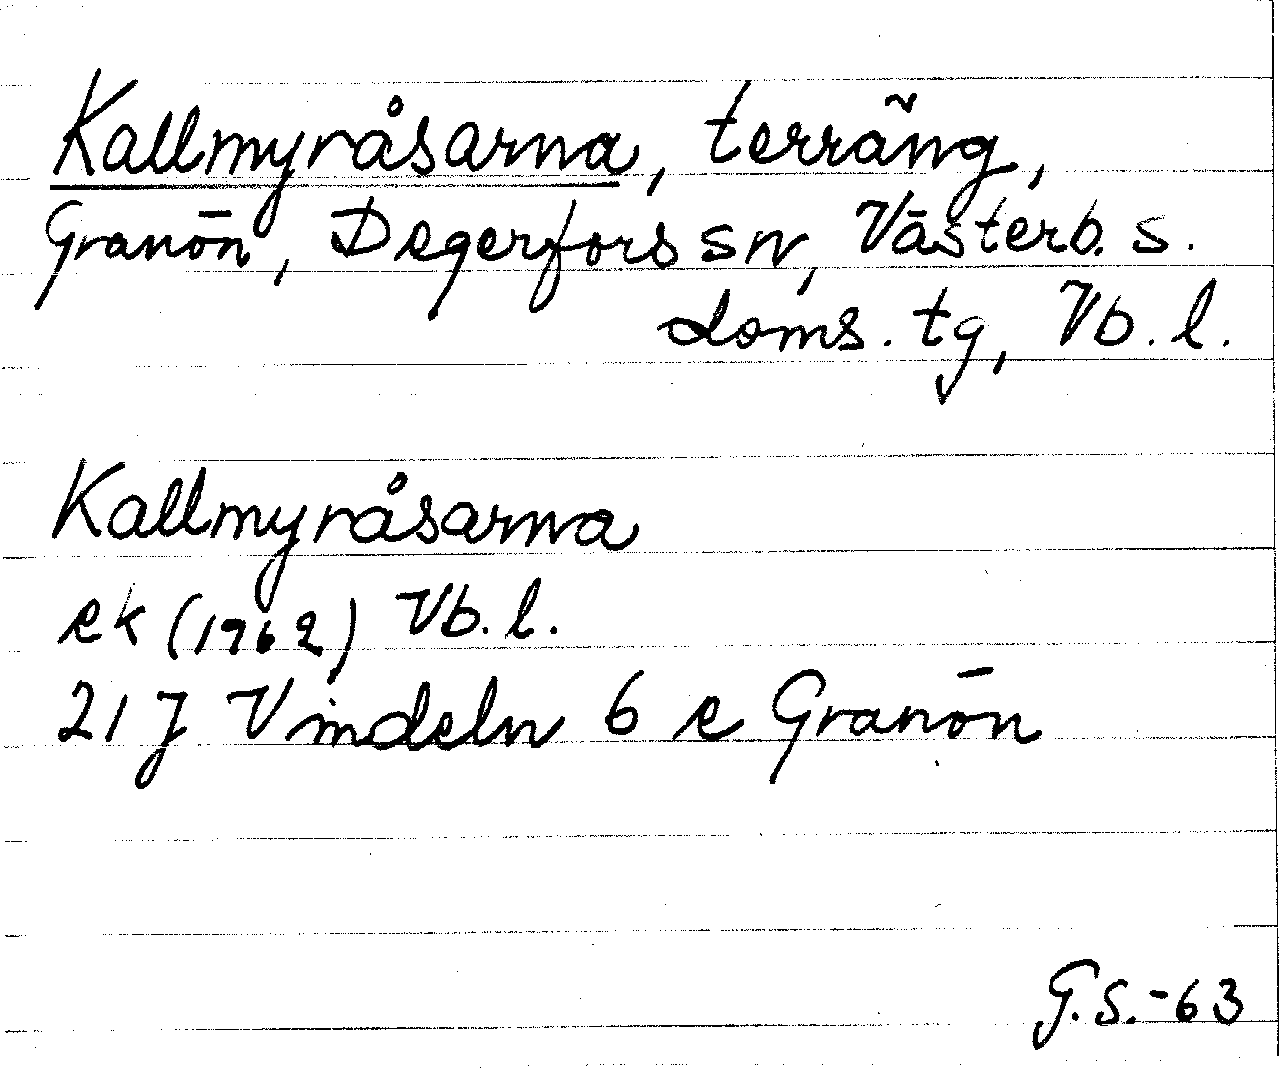 Kallmyråsarna, terräng,
Granön, Degerfors sn, Västerb. s.
doms. tg, Vb. l.
Kallmyråsarna
ek (1962) Vb. l.
21 J Vindeln 6 e Granön
G.S.-63